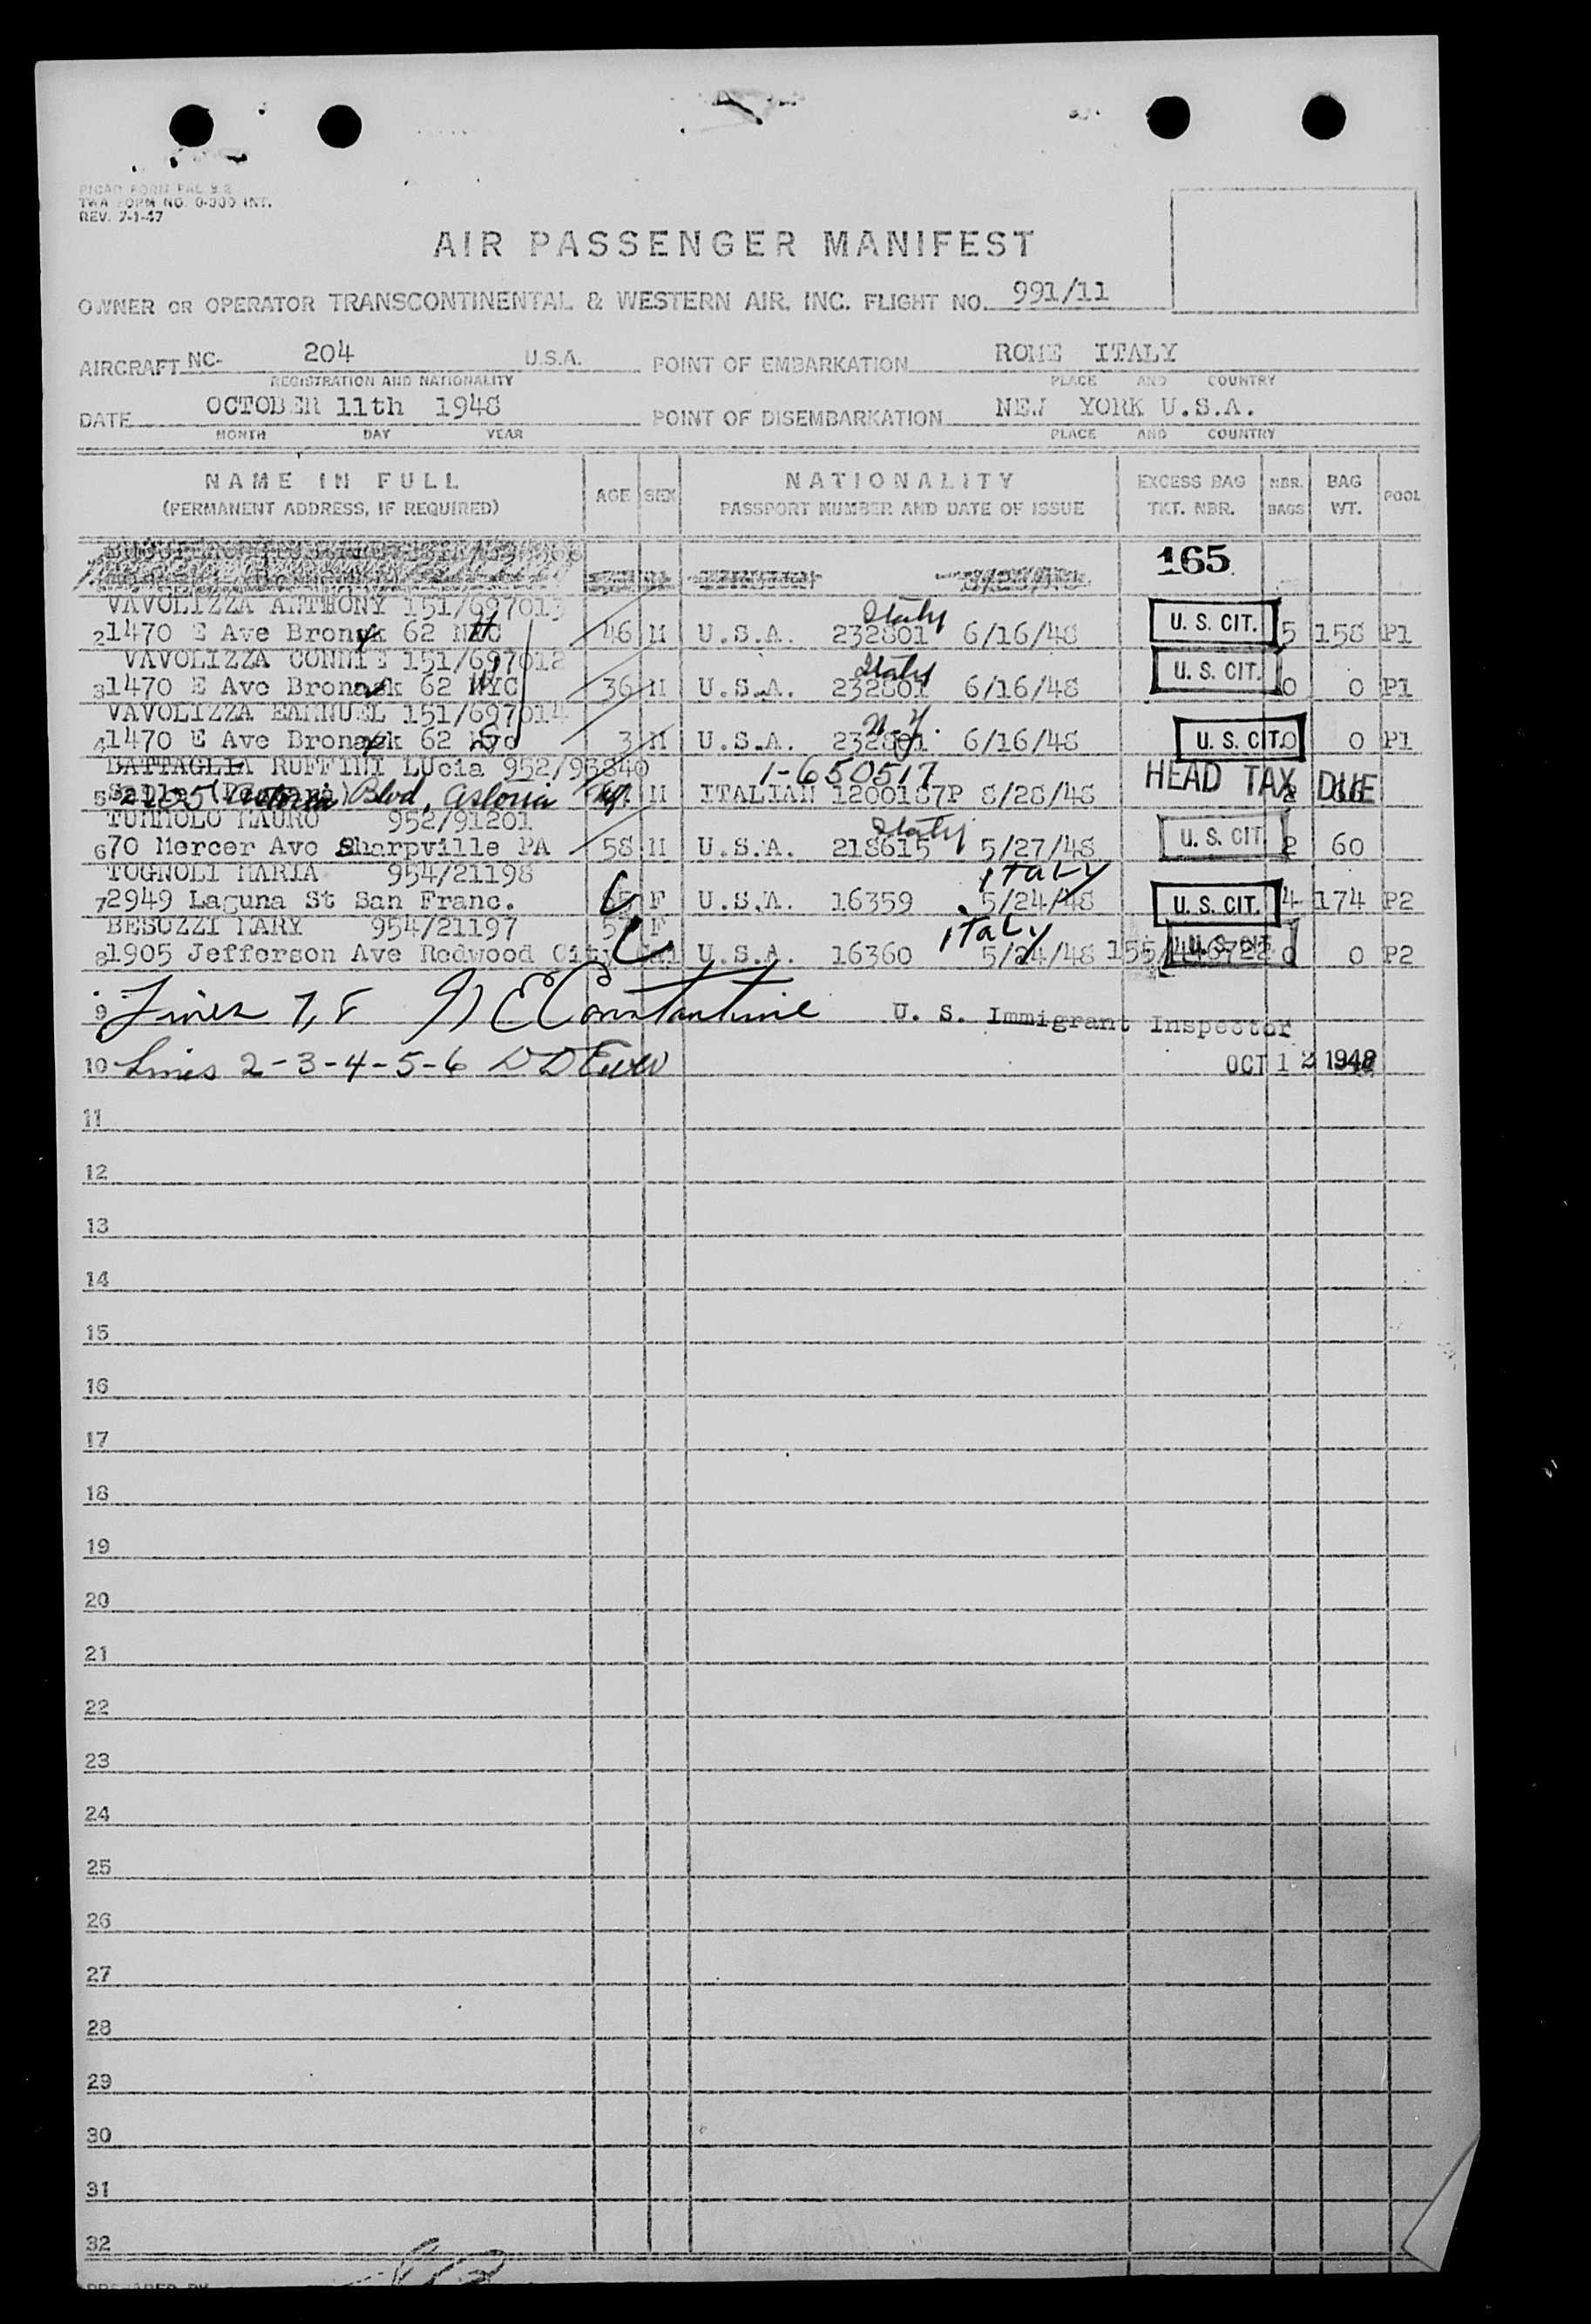 PICAO FORM FAL 9.2
TWA FORM NO. O-300 INT.
REV. 7-1-47
AIR PASSENGER MANIFEST
OWNER OR OPERATOR TRANSCONTINENTAL & WESTERN AIR, INC. FLIGHT NO. 991/11
AIRCRAFT NC- 204 U.S.A. POINT OF EMBARKATION ROME ITALY
REGISTRATION AND NATIONALITY PLACE AND COUNTRY
DATE OCTOBER 11th 1948 POINT OF DISEMBARKATION NEW YORK U.S.A.
MONTH DAY YEAR PLACE AND COUNTRY
NAME IN FULL AGE SEX NATIONALITY EXCESS BAG NBR. BAG POOL
(PERMANENT ADDRESS, IF REQUIRED) PASSPORT NUMBER AND DATE OF ISSUE TKT. NBR. BAGS WT.
165
VAVOLIZZA ANTHONY 151/697013 Italy
2 1470 E Ave Bronxk 62 NYC 46 M U.S.A. 232801 6/16/48 U. S. CIT. 5 158 P1
VAVOLIZZA CONNIE 151/697012 Italy
3 1470 E Ave Bronxk 62 NYC 36 M U.S.A. 232801 6/16/48 U. S. CIT. 0 0 P1
VAVOLIZZA EAMNUEL 151/697014 N.Y.
4 1470 E Ave Bronxk 62 NYC 3 M U.S.A. 232801 6/16/48 U. S. CIT. 0 0 P1
BATTAGLIA RUFFINI LUcia 952/93840 1-650517 HEAD TAX DUE
5 Blvd, Astoria M ITALIAN 1200187P 8/28/48 2
TUMMOLO MAURO 952/91201 Italy
6 70 Mercer Ave Sharpville PA 58 M U.S.A. 218615 5/27/48 U. S. CIT. 2 60
TOGNOLI MARIA 954/21198 ITALY
7 2949 Laguna St San Franc. 65 F U.S.A. 16359 5/24/48 U. S. CIT. 4 174 P2
BESUZZI MARY 954/21197 F ITALY
8 1905 Jefferson Ave Redwood City Cal U.S.A. 16360 5/24/48 U. S. CIT. 0 0 P2
9 Lines 7, 8 Constantine U. S. Immigrant Inspector
10 Lines 2-3-4-5-6 OCT 12 1948
11
12
13
14
15
16
17
18
19
20
21
22
23
24
25
26
27
28
29
30
31
32